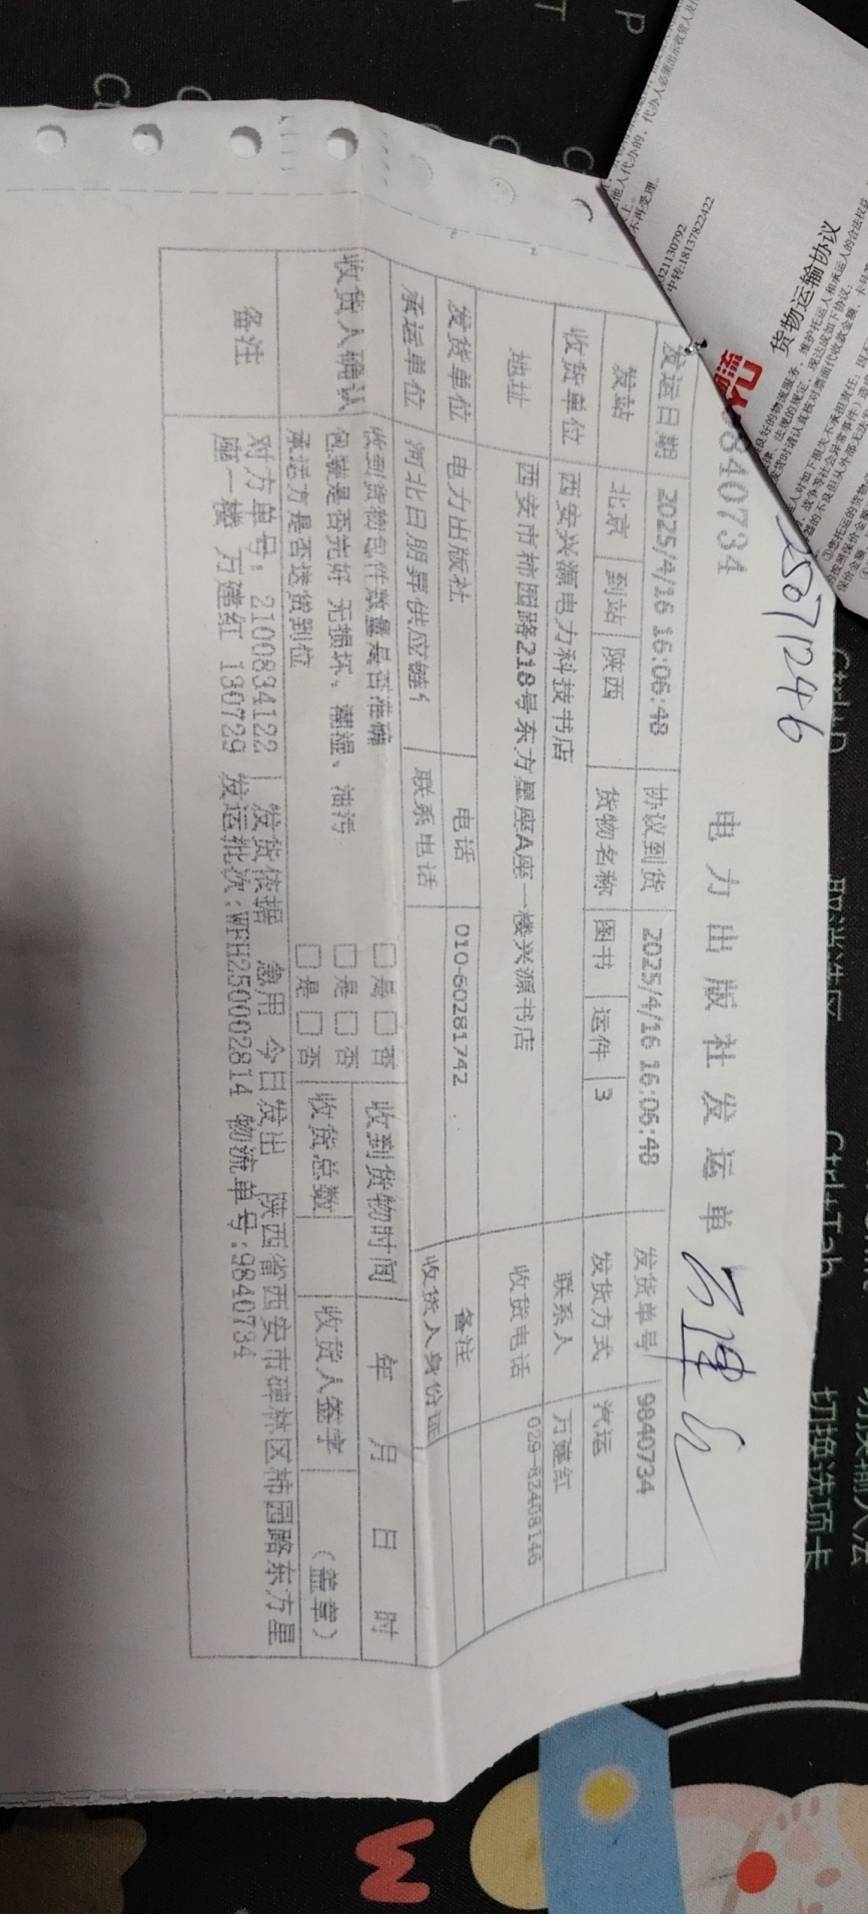 电力出版社发运单
840734
25071246
发运日期 2025/4/16 16:06:48 协议到货 2025/4/16 16:06:48 发货单号 9840734
发站 北京 到站 陕西 货物名称 图书 运件 3 发货方式 汽运
收货单位 西安兴源电力科技书店 联系人 万建红
地址 西安市柿园路218号东方星座A座一楼兴源书店 收货电话 029-82408146
发货单位 电力出版社 电话 010-60281742 备注
承运单位 河北日朋昇供应链 联系电话 收货人身份证
收货人确认
收到货物包件数量是否准确 □是□否 收到货物时间 年 月 日 时
包装是否完好 无损坏、潮湿、油污 □是□否
承运方是否送货到位 □是□否 收货总数 收货人签字 (盖章)
备注
对方单号：2100834122 | 发货依据 急用 今日发出 陕西省西安市碑林区柿园路东方星
座一楼 万建红 130729 发运批次:WFH250002814 物流单号:9840734
货物运输协议
中转:18137822422
321130792
不再受理。
Ctrl+D
取消选区
Ctrl+Tab
切换选项卡